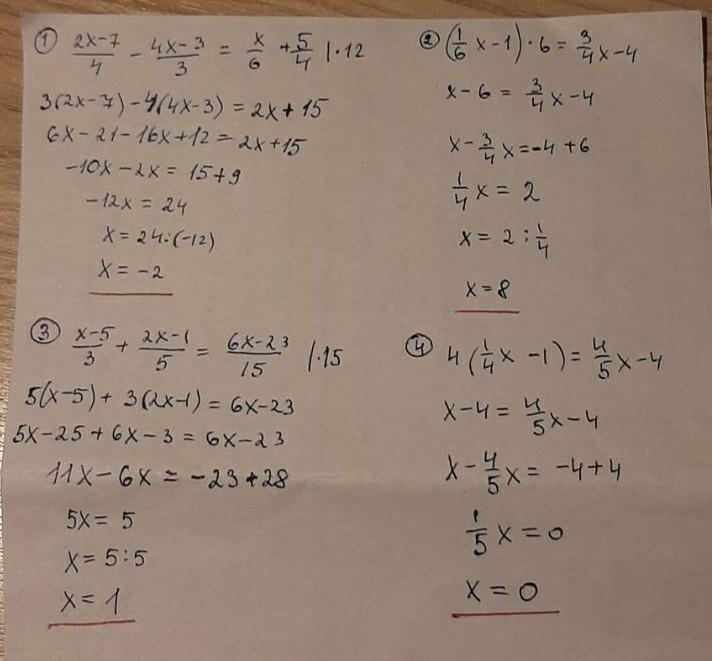 ① (2x-7)/4 - (4x-3)/3 = x/6 + 5/4 /·12
3(2x-7) - 4(4x-3) = 2x + 15
6x - 21 - 16x + 12 = 2x + 15
-10x - 2x = 15 + 9
-12x = 24
x = 24:(-12)
x = -2
② (1/6 x - 1)·6 = 3/4 x - 4
x - 6 = 3/4 x - 4
x - 3/4 x = -4 + 6
1/4 x = 2
x = 2 : 1/4
x = 8
③ (x-5)/3 + (2x-1)/5 = (6x-23)/15 /·15
5(x-5) + 3(2x-1) = 6x - 23
5x - 25 + 6x - 3 = 6x - 23
11x - 6x = -23 + 28
5x = 5
x = 5:5
x = 1
④ 4(1/4 x - 1) = 4/5 x - 4
x - 4 = 4/5 x - 4
x - 4/5 x = -4 + 4
1/5 x = 0
x = 0